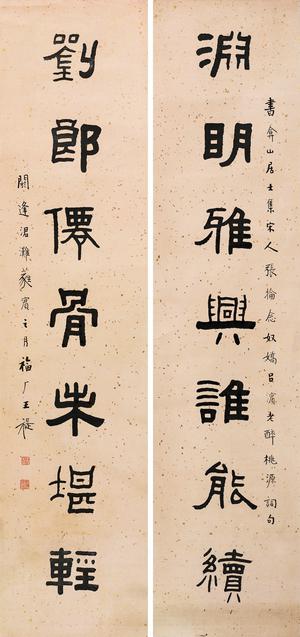 淵明雅興誰能續
書弇山居士集宋人張掄念奴嬌呂濱老醉桃源詞句
劉郎僊骨未堪輕
閼逢涒灘蕤賓之月福厂王禔